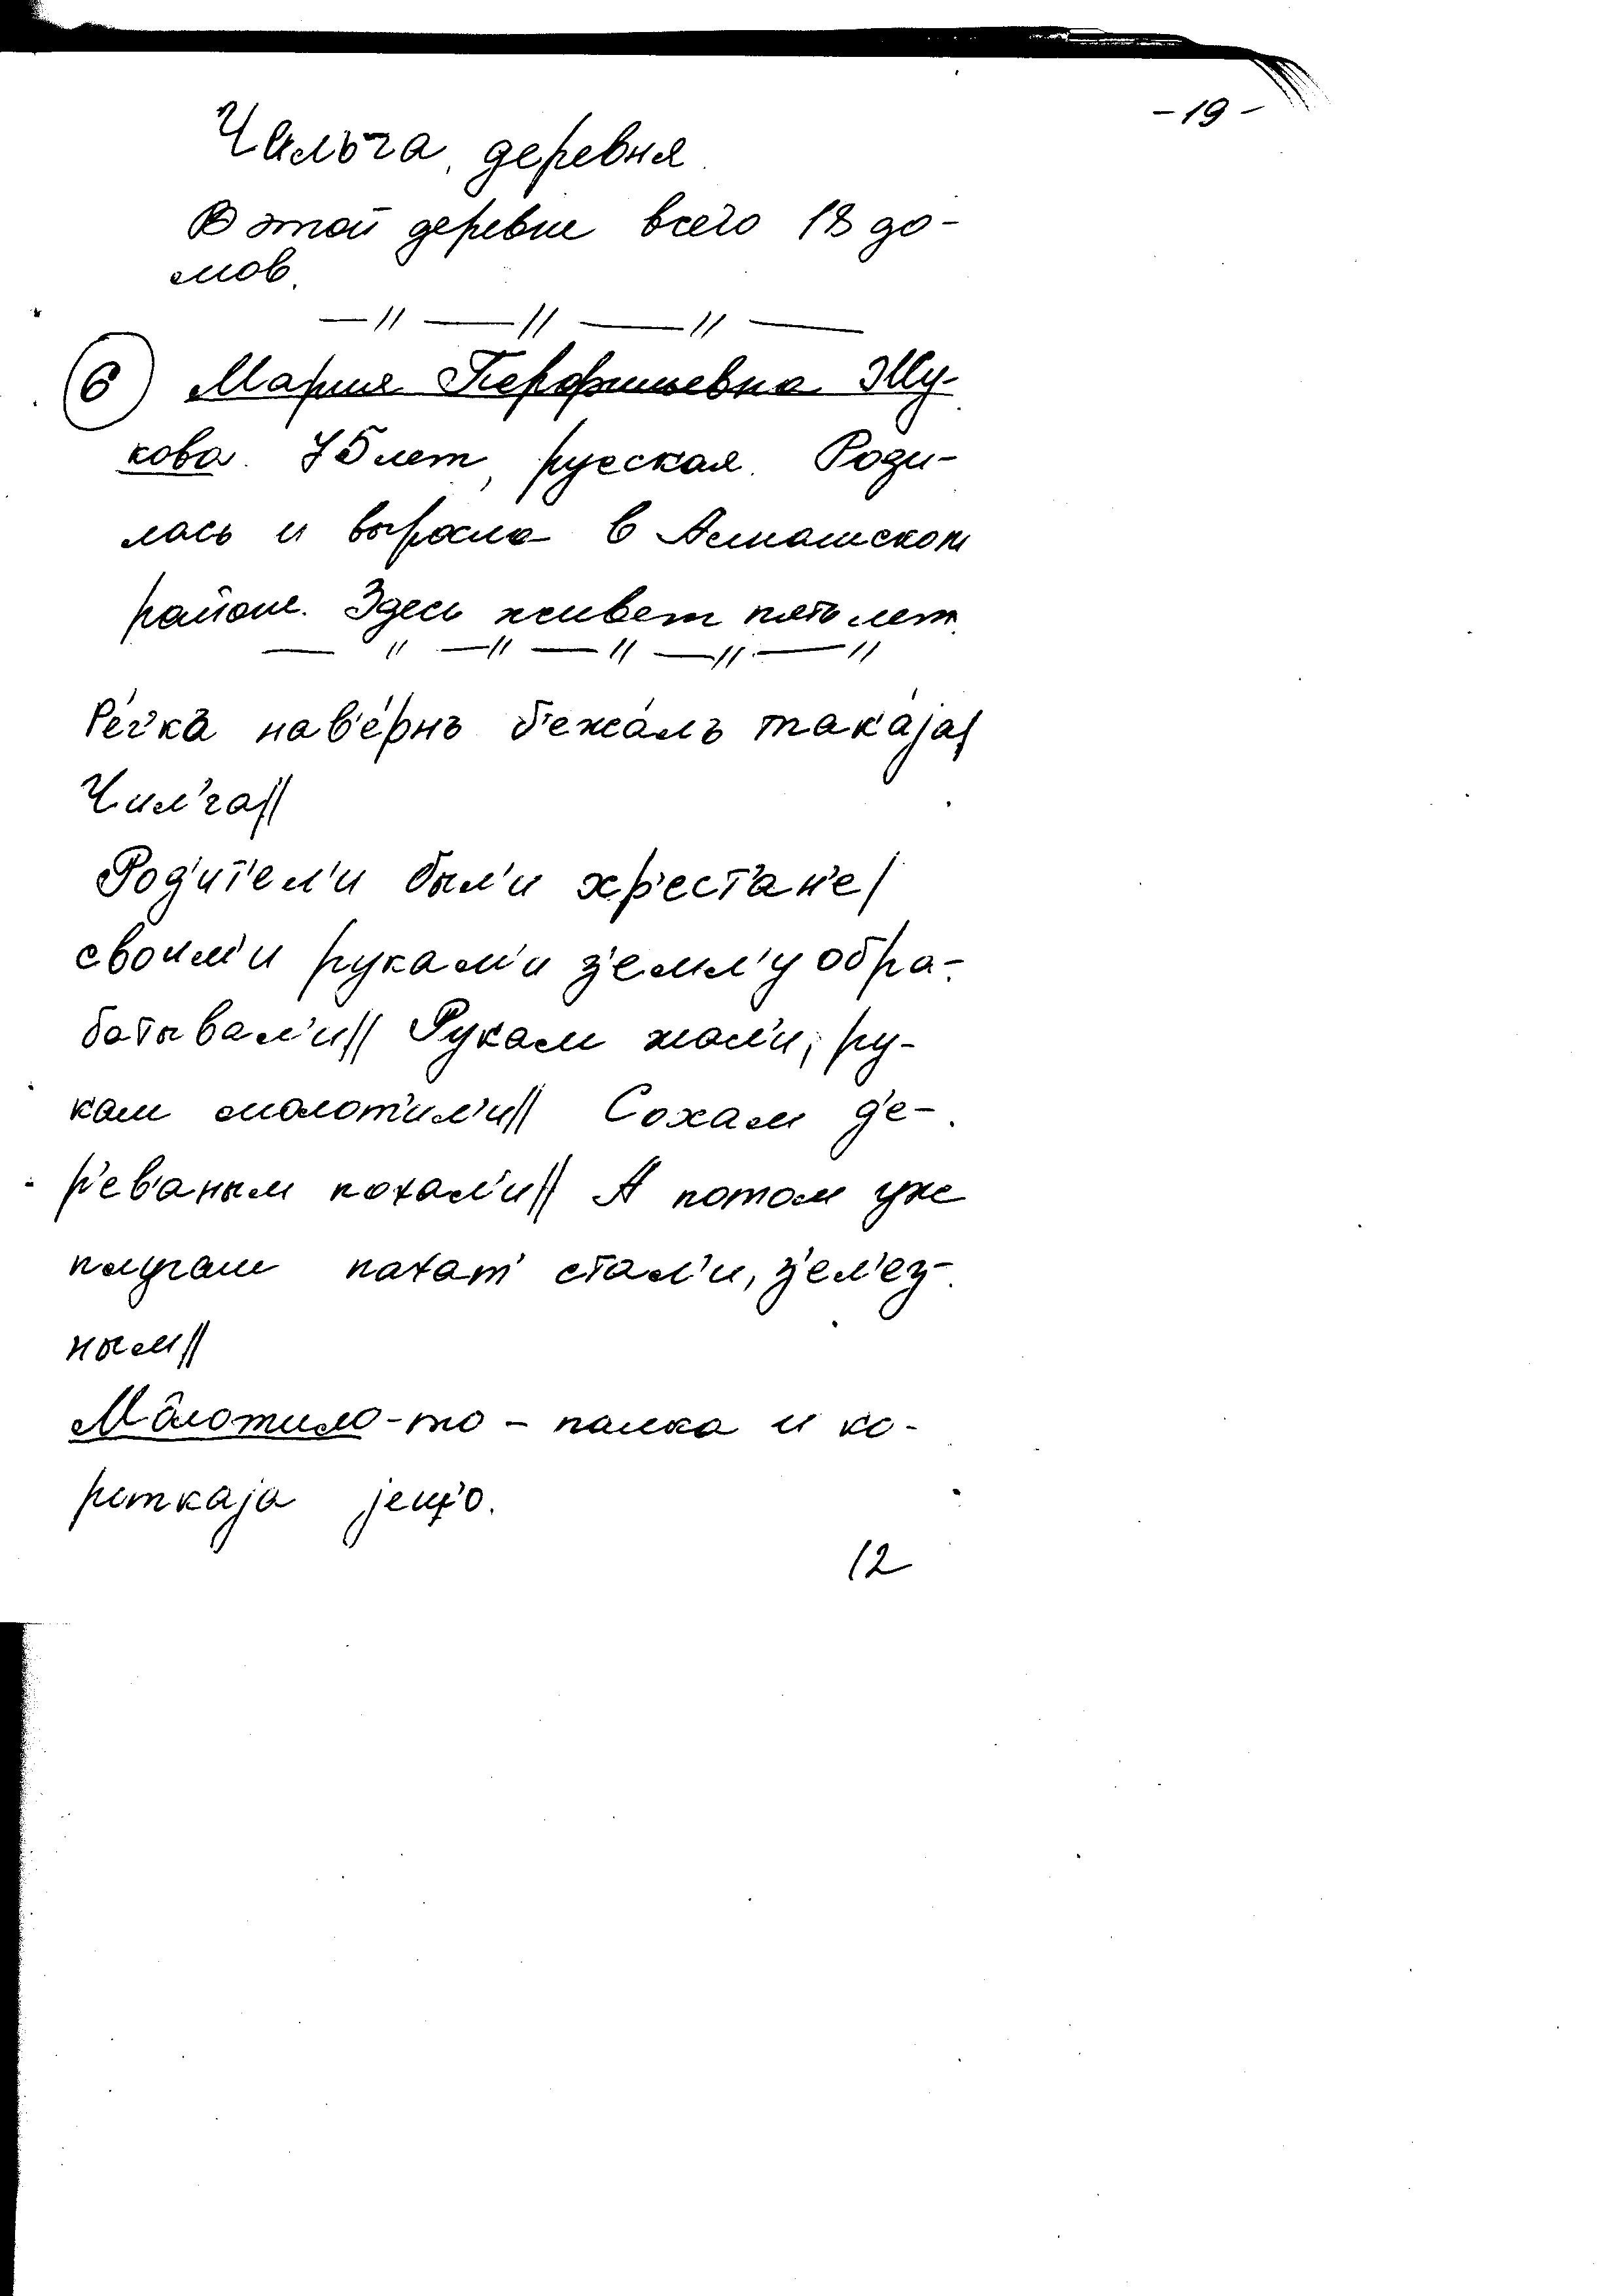 - 19 -
Чильча, деревня.
В этой деревне всего 18 до-
мов.
— // — // — // —
6 Мария Перфильевна Жу-
кова. 75 лет, русская. Роди-
лась и выросла в Алнашском
районе. Здесь живет пять лет.
— // — // — // — // — //
Ре́ч'ка нав'е́рнъ б'ежа́лъ така́jа/
Чил'ча//
Род'ит'ел'и был'и хр'ест'ан'е/
своим'и рукам'и з'емл'у обра-
батывал'и// Рукам жал'и, ру-
кам молот'ил'и// Сохам д'е-
р'ев'аным пахал'и// А потом уже
плугам пахат' стал'и, з'ел'ез-
ным//
Мôлотило-то - палка и ко-
роткаjа jещ'о.
12